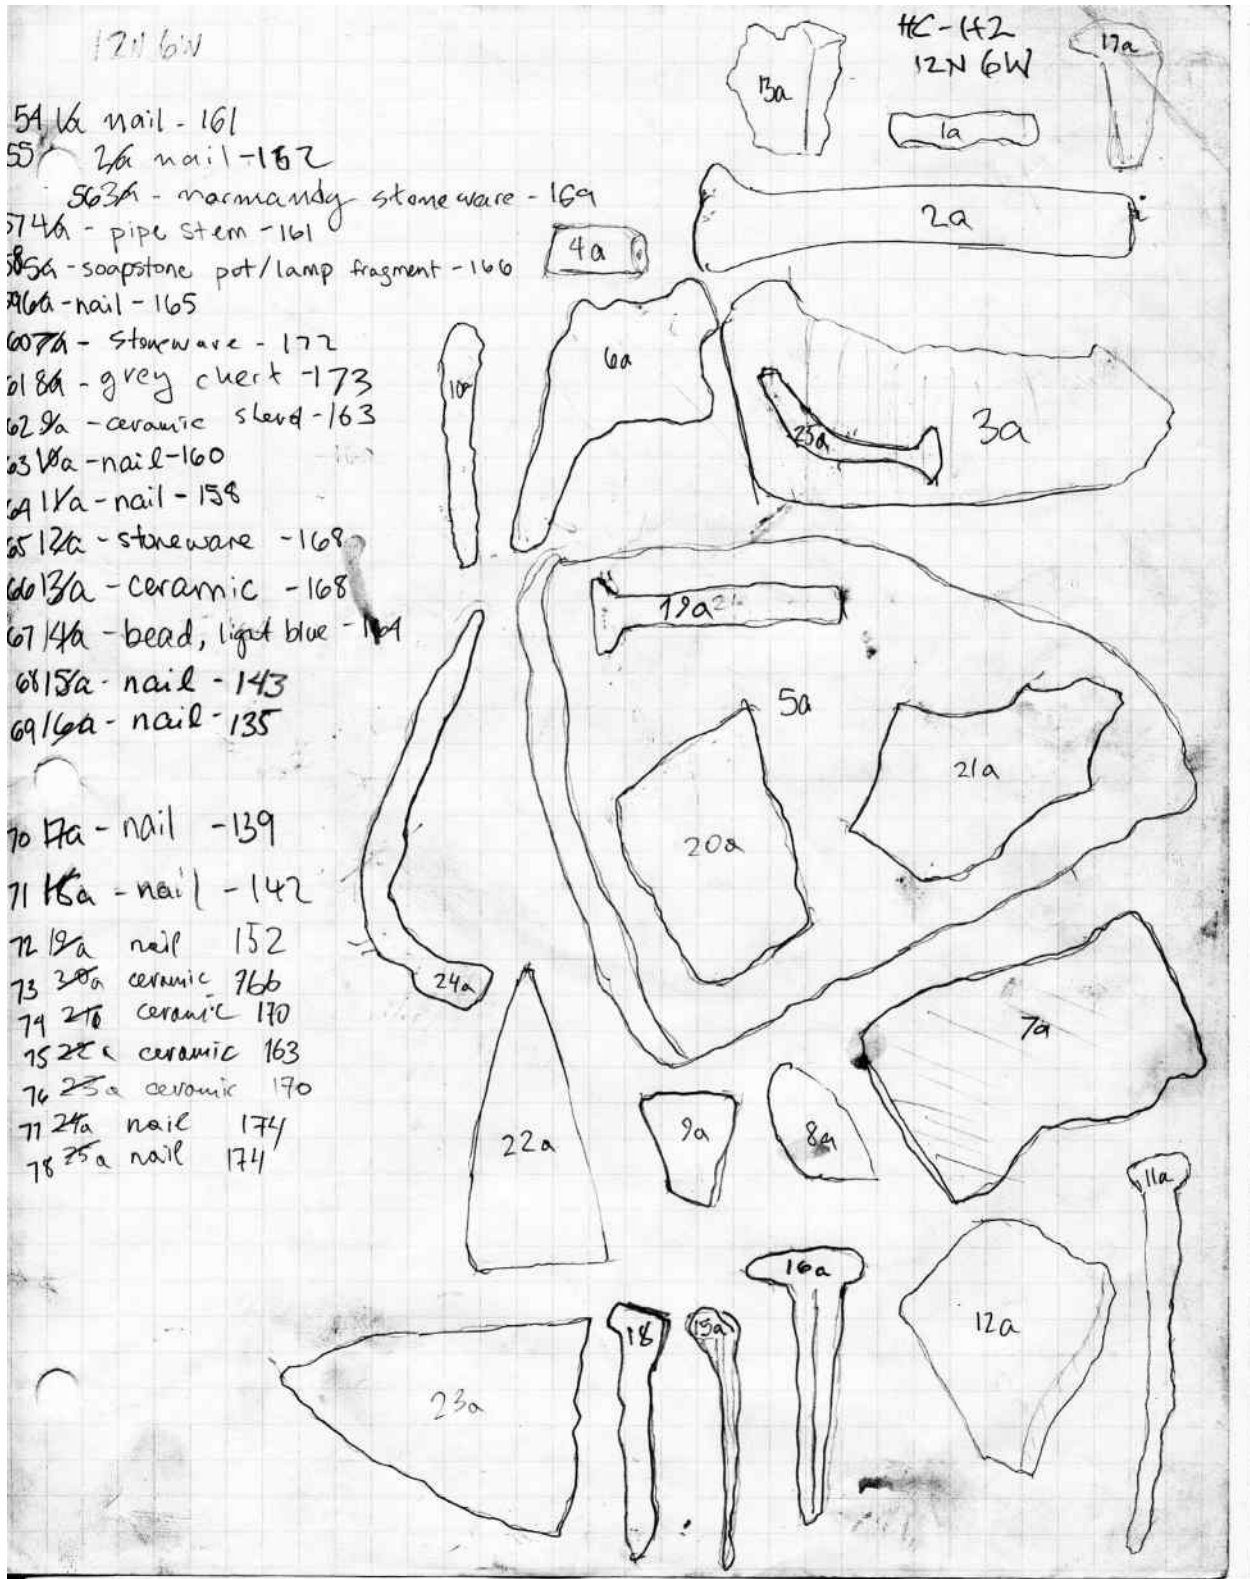 12N 6W
HC-H2
12N 6W
54 1a nail - 161
55 2a nail - 162
56 3a - normandy stoneware - 169
57 4a - pipe stem - 161
58 5a - soapstone pot/lamp fragment - 166
59 6a - nail - 165
60 7a - stoneware - 172
61 8a - grey chert - 173
62 9a - ceramic sherd - 163
63 10a - nail - 160
64 11a - nail - 158
65 12a - stoneware - 168
66 13a - ceramic - 168
67 14a - bead, light blue - 164
68 15a - nail - 143
69 16a - nail - 135
70 17a - nail - 139
71 18a - nail - 142
72 19a nail 152
73 20a ceramic 166
74 21a ceramic 170
75 22a ceramic 163
76 23a ceramic 170
77 24a nail 174
78 25a nail 174
13a
17a
1a
2a
4a
6a
10a
3a
25a
19a
5a
21a
20a
24a
7a
22a
9a
8a
11a
16a
12a
18
15a
23a